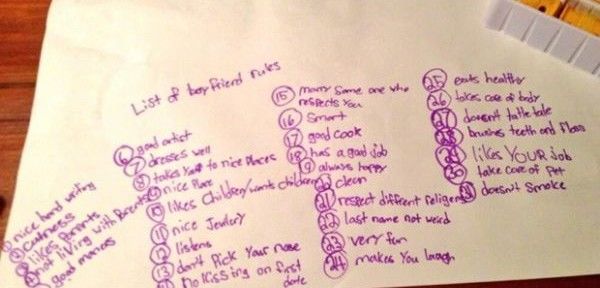 List of boyfriend rules
nice hand writing
cuteness
likes Parents
not living with Parents
good manners
6 good artist
7 dresses well
8 takes You to nice Places
9 nice Place
10 likes Children/wants children
11 nice Jewlery
12 listens
13 don't Pick Your nose
no Kissing on first
date
15 marry some one who
respects You
16 Smart
17 good cook
18 has a good job
19 always happy
clean
21 respect diffrent religens
22 last name not weird
23 very fun
24 makes You laugh
25 eats healthy
26 takes care of body
27 doesnt tattletale
28 brushes teeth and Floss
29 likes YOUR job
30 take care of Pet
31 doesn't Smoke